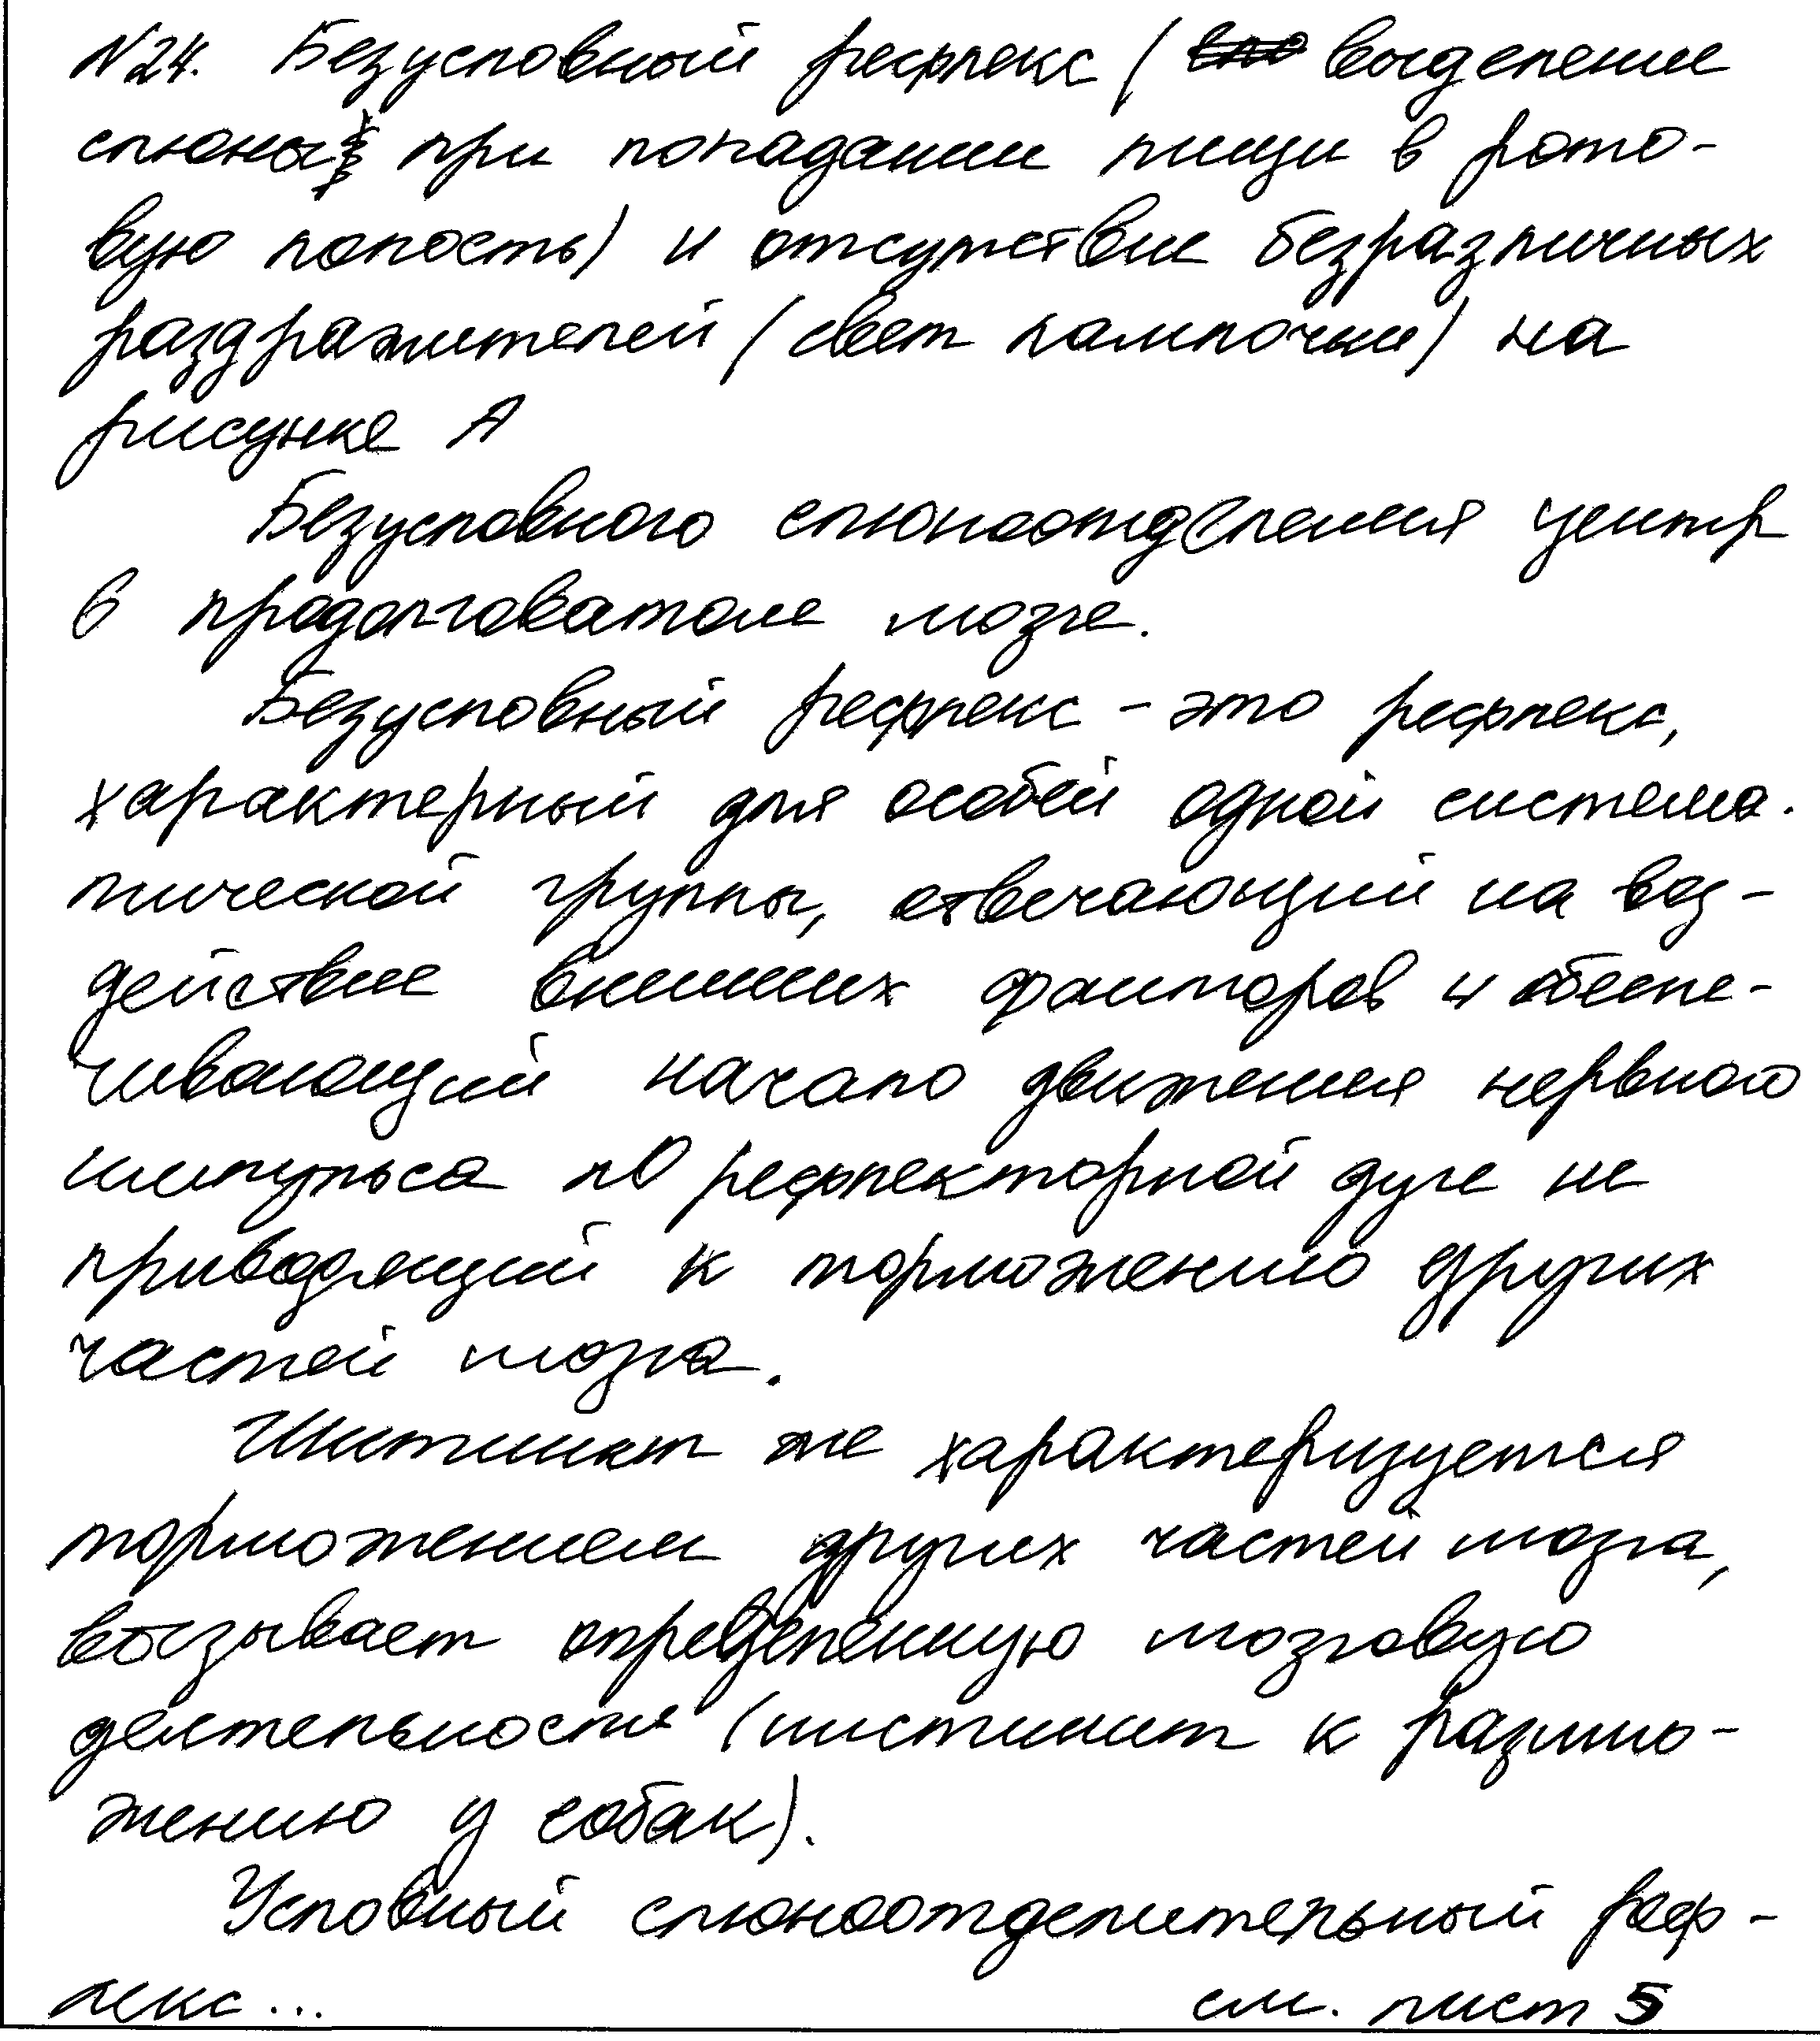 N24. Безусловный рефлекс ( выделение
слюны при попадании пищи в рото-
вую полость) и отсутствие безразличных
раздражителей (свет лампочки) на
рисунке А
Безусловного слюноотделения центр
в продолговатом мозге.
Безусловный рефлекс - это рефлекс,
характерный для особей одной система-
тической группы, отвечающий на воз-
действие внешних факторов и обеспе-
чивающий начало движения нервного
импульса по рефлекторной дуге не
приводящий к торможению других
частей мозга.
Инстинкт же характеризуется
торможением других частей мозга,
вызывает определённую мозговую
деятельность (инстинкт к размно-
жению у собак).
Условный слюноотделительный реф-
лекс... см. лист 5